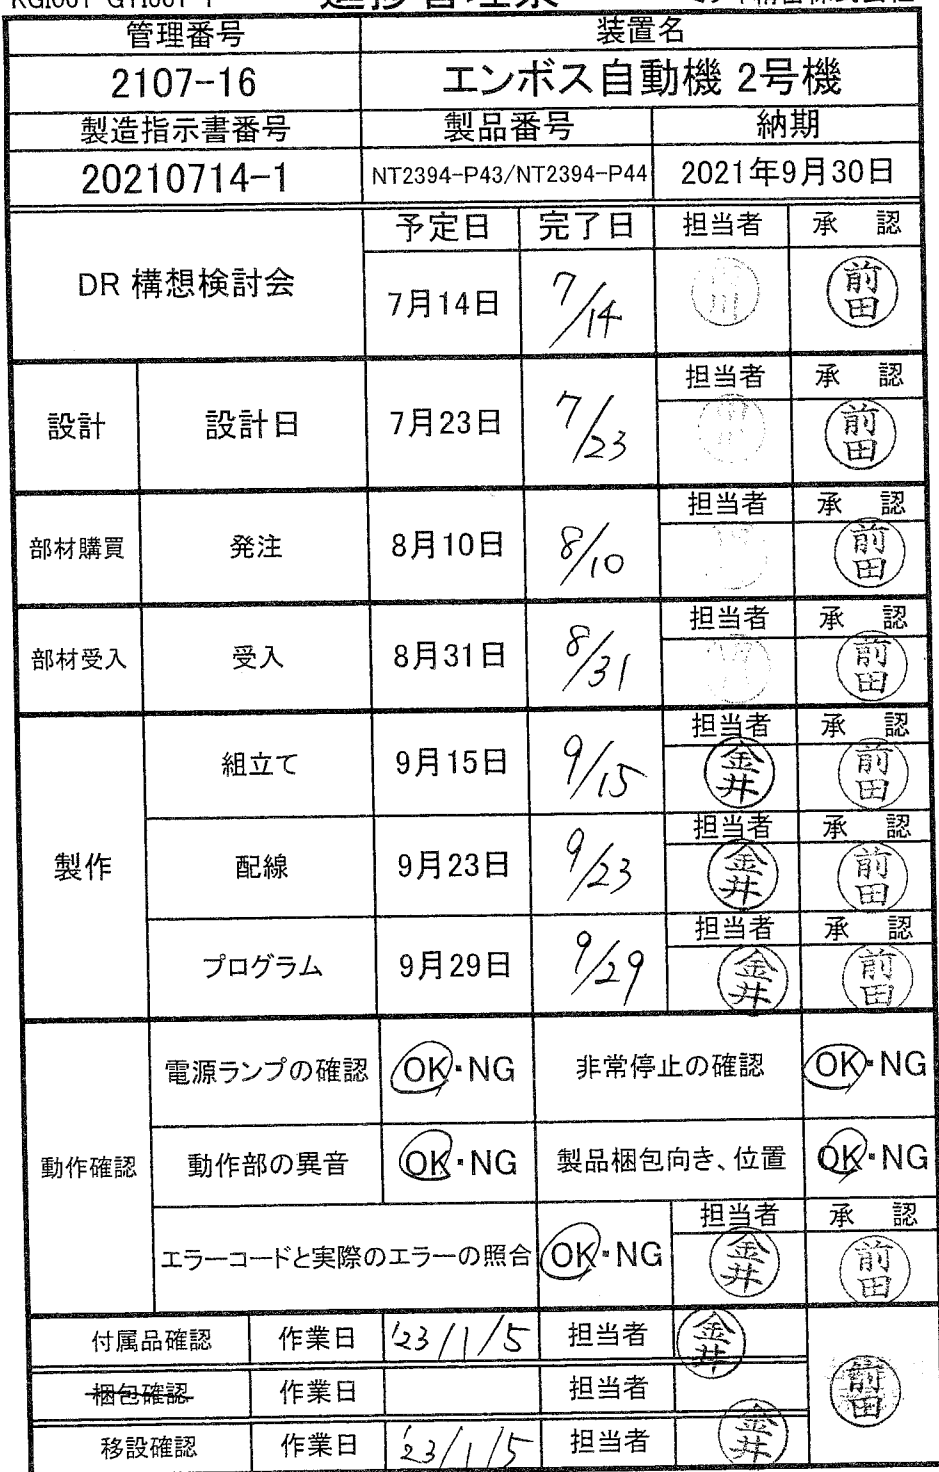 管理番号 装置名
2107-16 エンボス自動機 2号機
製造指示書番号 製品番号 納期
20210714-1 NT2394-P43/NT2394-P44 2021年9月30日
予定日 完了日 担当者 承 認
DR 構想検討会 7月14日 7/14 川 前田
担当者 承 認
設計 設計日 7月23日 7/23 前田
担当者 承 認
部材購買 発注 8月10日 8/10 前田
担当者 承 認
部材受入 受入 8月31日 8/31 前田
担当者 承 認
組立て 9月15日 9/15 金井 前田
担当者 承 認
製作 配線 9月23日 9/23 金井 前田
担当者 承 認
プログラム 9月29日 9/29 金井 前田
電源ランプの確認 OK・NG 非常停止の確認 OK・NG
動作確認 動作部の異音 OK・NG 製品梱包向き、位置 OK・NG
担当者 承 認
エラーコードと実際のエラーの照合 OK・NG 金井 前田
付属品確認 作業日 '23/1/5 担当者 金井
梱包確認 作業日 担当者 前田
移設確認 作業日 '23/1/5 担当者 金井